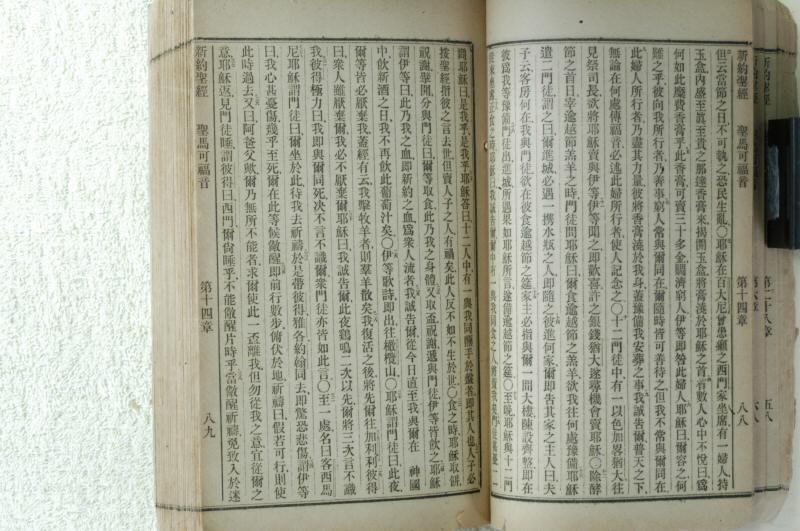 新約聖經 聖馬可福音 第十四章 八八
但云當節之日不可執之恐民生亂〇耶穌在百大尼曾患癩之西門家坐席有一婦人持
玉盒內盛至眞至貴之那達香膏來揭開玉盒將膏澆於耶穌之首有數人心中不悅曰爲
何如此糜費香膏乎此香膏可賣三十多金賙濟窮人伊等卽咎此婦人耶穌曰爾容之何
難之乎彼向我所行者乃善事窮人常與爾同在爾隨時皆可善待之但我不常與爾同在
此婦人所行者乃盡其力量彼將香膏澆於我身蓋豫備我安葬之事我誠告爾普天之下
無論在何處傳福音必述此婦所行者使人記念之〇十二門徒中有一以色加畧猶大往
見祭司長欲將耶穌賣與伊等伊等聞之卽歡喜許之銀錢猶大遂尋機會賣耶穌〇除酵
節之首日宰逾越節羔羊之時門徒問耶穌曰爾食逾越節之羔羊欲我往何處豫備耶穌
遣二門徒謂之曰爾進城必遇一攜水瓶之人卽隨之彼進何家爾卽告其家之主人曰夫
子云客房何在我與門徒欲在彼食逾越節之筵家主必指與爾一間大樓陳設齊整卽在
彼爲我等豫備門徒出進城所遇果如耶穌所言遂備逾越節之筵〇至晚耶穌與十二門
間耶穌曰是我乎是我乎耶穌答曰十二人中有一與我同蘸手於盤者卽其人也人子必
按聖經指彼之言去世但賣人子之人有禍矣此人反不如不生於世〇食之時耶穌取餅
祝謝擘開分與門徒曰爾等取食此乃我之身體又取盃祝謝遞與門徒伊等皆飮之耶穌
謂伊等曰此乃我之血卽新約之血爲衆人流者我誠告爾從今日直至我與爾在 神國
中飮新酒之日我不再飮此葡萄汁矣〇伊等歌詩卽出往橄欖山〇耶穌謂門徒曰此夜
爾等皆必厭棄我蓋經有云我擊牧羊者則羣羊散矣我復活之後將先爾往加利利彼得
曰衆人雖厭棄爾我必不厭棄爾耶穌曰我誠告爾此夜鷄鳴二次以先爾將三次言不識
我彼得極力曰我卽與爾同死决不言不識爾衆門徒亦皆如此言〇至一處名曰客西馬
尼耶穌謂門徒曰爾坐於此待我去祈禱於是帶彼得雅各約翰同去卽驚恐悲傷謂伊等
曰我心甚憂傷幾乎至死爾在此等候儆醒卽前行數步俯伏於地祈禱曰假若可行則使
此時過去又曰阿爸父歟爾乃無所不能者求爾使此一盃離我但勿從我之意宜從爾之
意耶穌返見門徒睡謂彼得曰西門爾尙睡乎不能儆醒片時乎當儆醒祈禱免致入於迷
新約聖經 聖馬可福音 第十四章 八九